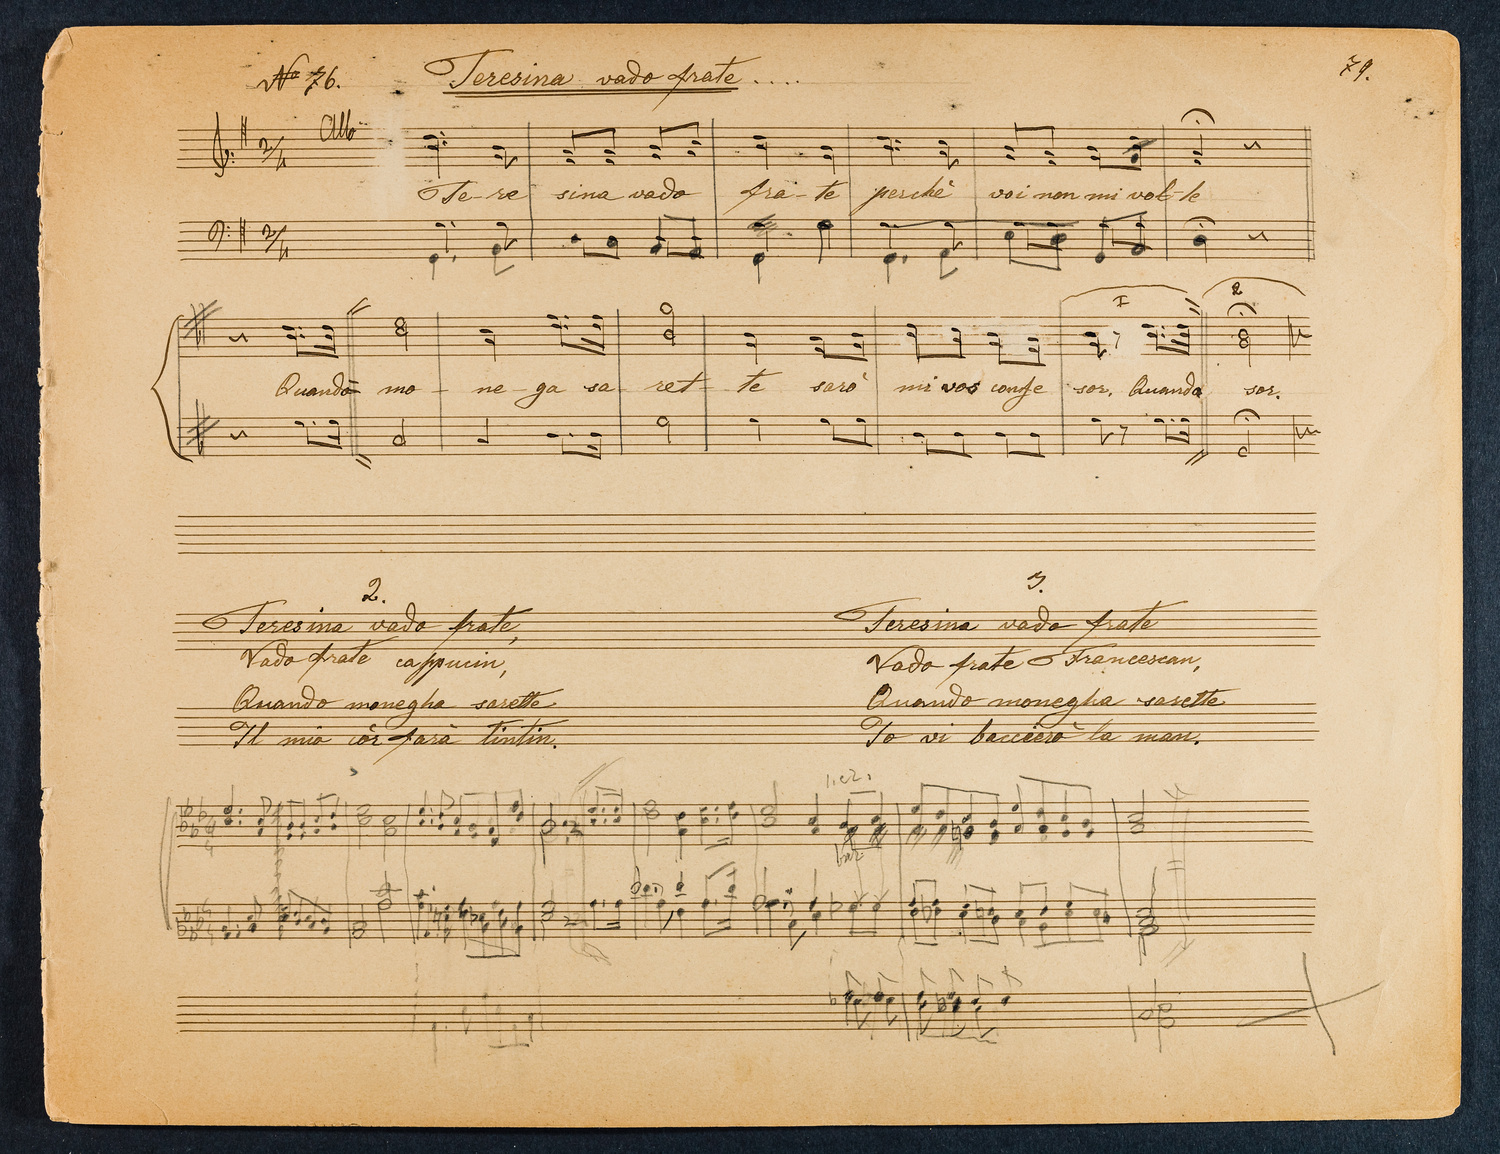 No 76. Teresina vado frate.... 79.
Allo
2/4
Te-re sina vado fra-te perchè voi non mi vol-te
2/4
I 2
Quando mo-ne-ga sa-ret-te sarò mi vos confe sor. Quando sor.
2.
Teresina vado frate,
Vado frate cappucin,
Quando monegha sarette
Il mio còr farà tintin.
3.
Teresina vado frate
Vado frate Francescan,
Quando monegha sarette
Io vi baccierò la man.